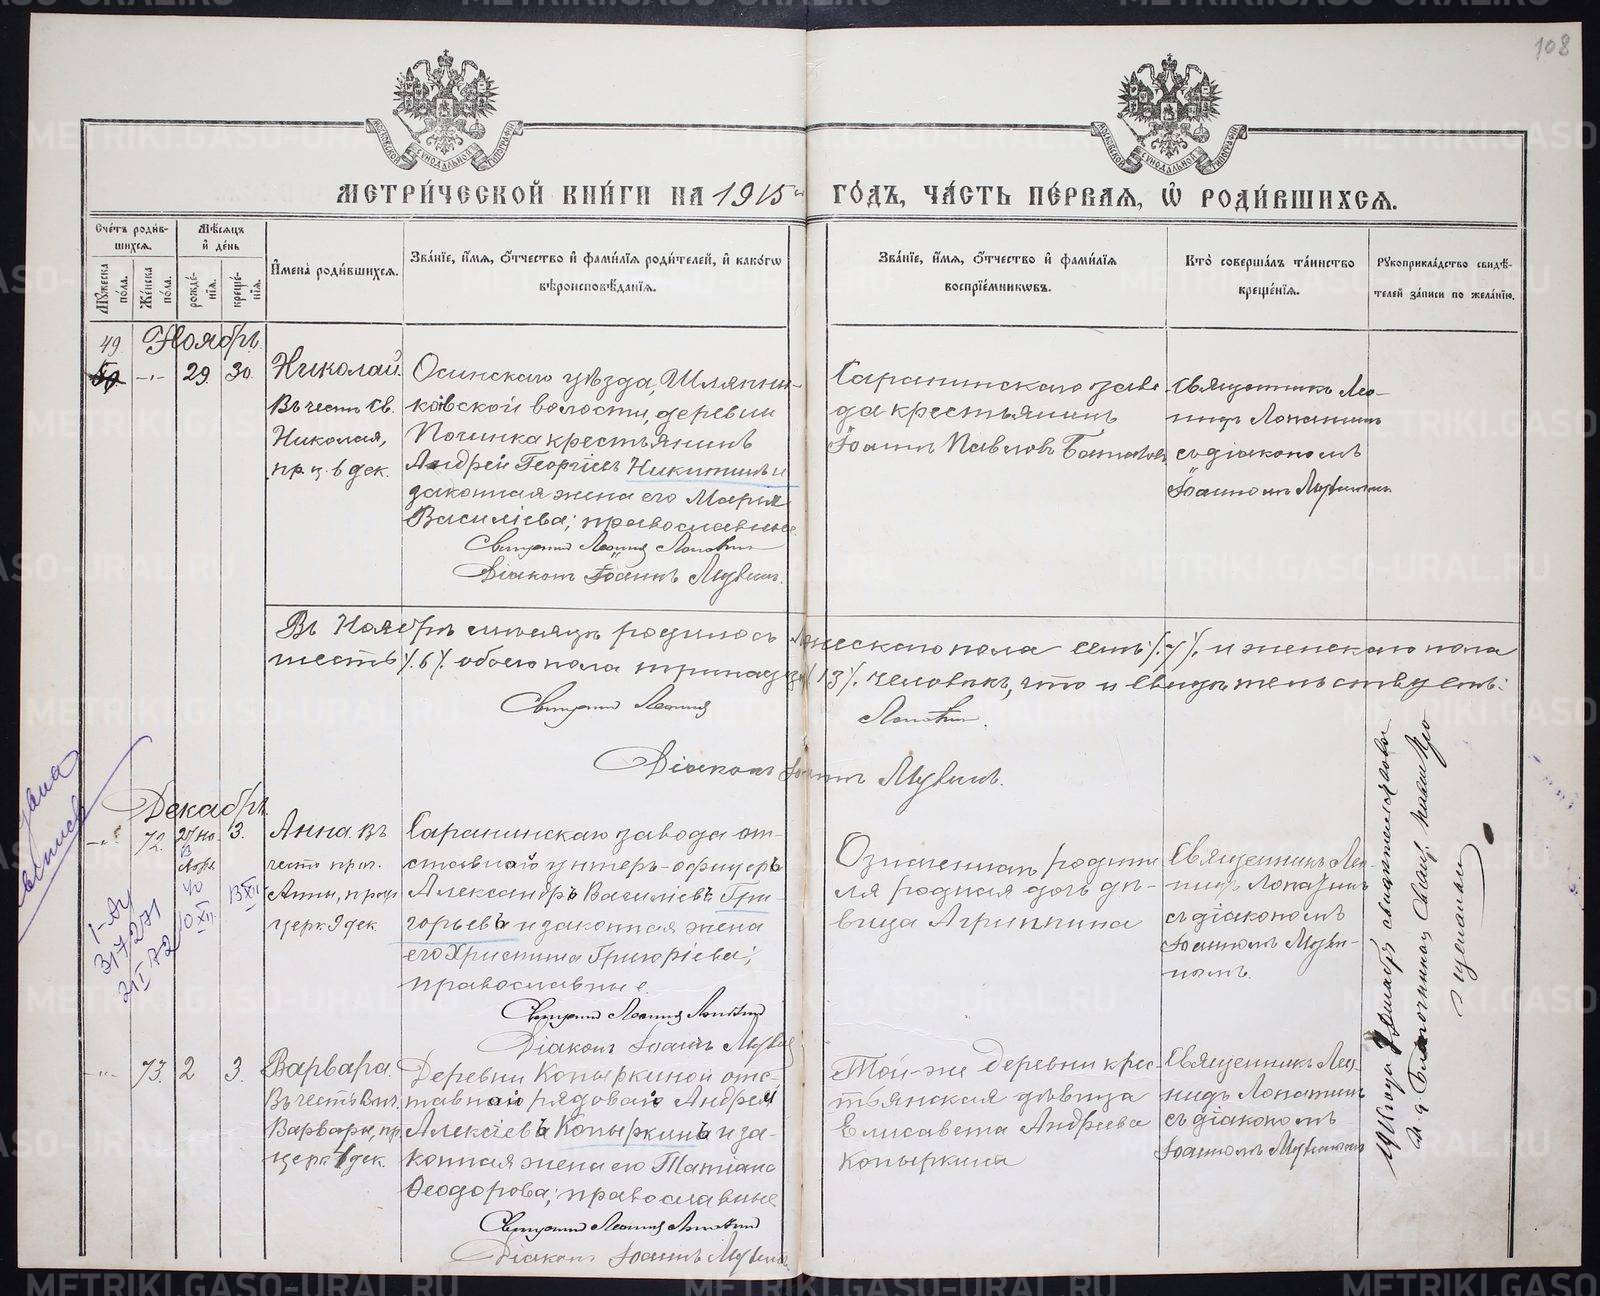 108
МОСКОВСКОЙ СѴНОДАЛЬНОЙ ТИПОГРАФІИ
МОСКОВСКОЙ СѴНОДАЛЬНОЙ ТИПОГРАФІИ
МЕТРИ́ЧЕСКОЙ КНИ́ГИ НА 1915 ГО́ДЪ, ЧА́СТЬ ПЕ́РВАЯ, Ѡ҆ РОДИ́ВШИХСЯ.
Сче́тъ роди́в-
шихся.
Мѣ́сяцъ
и҆ де́нь
Мꙋ́жеска
по́ла.
Же́нска
по́ла.
рожде́-
нїѧ.
креще́-
нїѧ.
И҆мена̀ роди́вшихся.
Зва́нїе, и҆́мя, ѻ҆́тчество и҆ фами́лїя роди́телей, и҆ како́гѡ
вѣроисповѣ́данїя.
Зва́нїе, и҆́мя, ѻ҆́тчество и҆ фами́лїя
воспрїе́мникѡвъ.
Кто̀ соверша́лъ та́инство
креще́нїя.
Рꙋкоприкла́дство свидѣ́-
телей за́писи по жела́нїю.
Ноябрь.
49
50
29. 30.
Николай.
Въ честь Св.
Николая,
пр. ц. 6 дек.
Осинскаго уѣзда, Шляпни-
ковской волости, деревни
Починка крестьянинъ
Андрей Георгіевъ Никитинъ и
законная жена его Марія
Василіева; православные
Священникъ Леонидъ Лопатинъ
Діаконъ Іоаннъ Мувинъ.
Саранинскаго заво
да крестьянинъ
Іоаннъ Павловъ
Священникъ Лео-
нидъ Лопатинъ
съ діакономъ
Іоанномъ
Въ Ноябрѣ мѣсяцѣ родилось мужескаго пола семь /7/. и женскаго пола
шесть /6/. обоего пола тринадцать /13/. человѣкъ, что и свидѣтельствуемъ:
Священникъ Леонидъ Лопатинъ.
Діаконъ Іоаннъ Мувинъ.
Декабрь.
72. 27 но- 3.
Анна въ
честь прав.
Анны, празд.
церк. 9 дек.
Саранинскаго завода от-
ставной унтеръ-офицеръ
Александръ Василіевъ Гри-
горьевъ и законная жена
его Христина Григоріева;
православные.
Священникъ Леонидъ Лопатинъ
Діаконъ Іоаннъ
Означенныхъ родите
ля родная дочь дѣ-
вица Агриппина
Священникъ Лео-
нидъ Лопатинъ
съ діакономъ
Іоанномъ Муви-
нымъ.
73. 2 3.
Варвара.
Въ честь Вмч.
Варвары, пр.
церк. 4 дек.
Деревни Копыркиной отс-
тавной рядовой Андрей
Алексіевъ Копыркинъ и за-
конная жена его Татіана
Ѳеодорова; православные
Священникъ Леонидъ Лопатинъ
Діаконъ Іоаннъ
Той-же деревни крес-
тьянская дѣвица
Елисавета Андреева
Копыркина
Священникъ Лео-
нидъ Лопатинъ
съ діакономъ
Іоанномъ
I-АУ
317271
METRIKI.GASO-URAL.RU